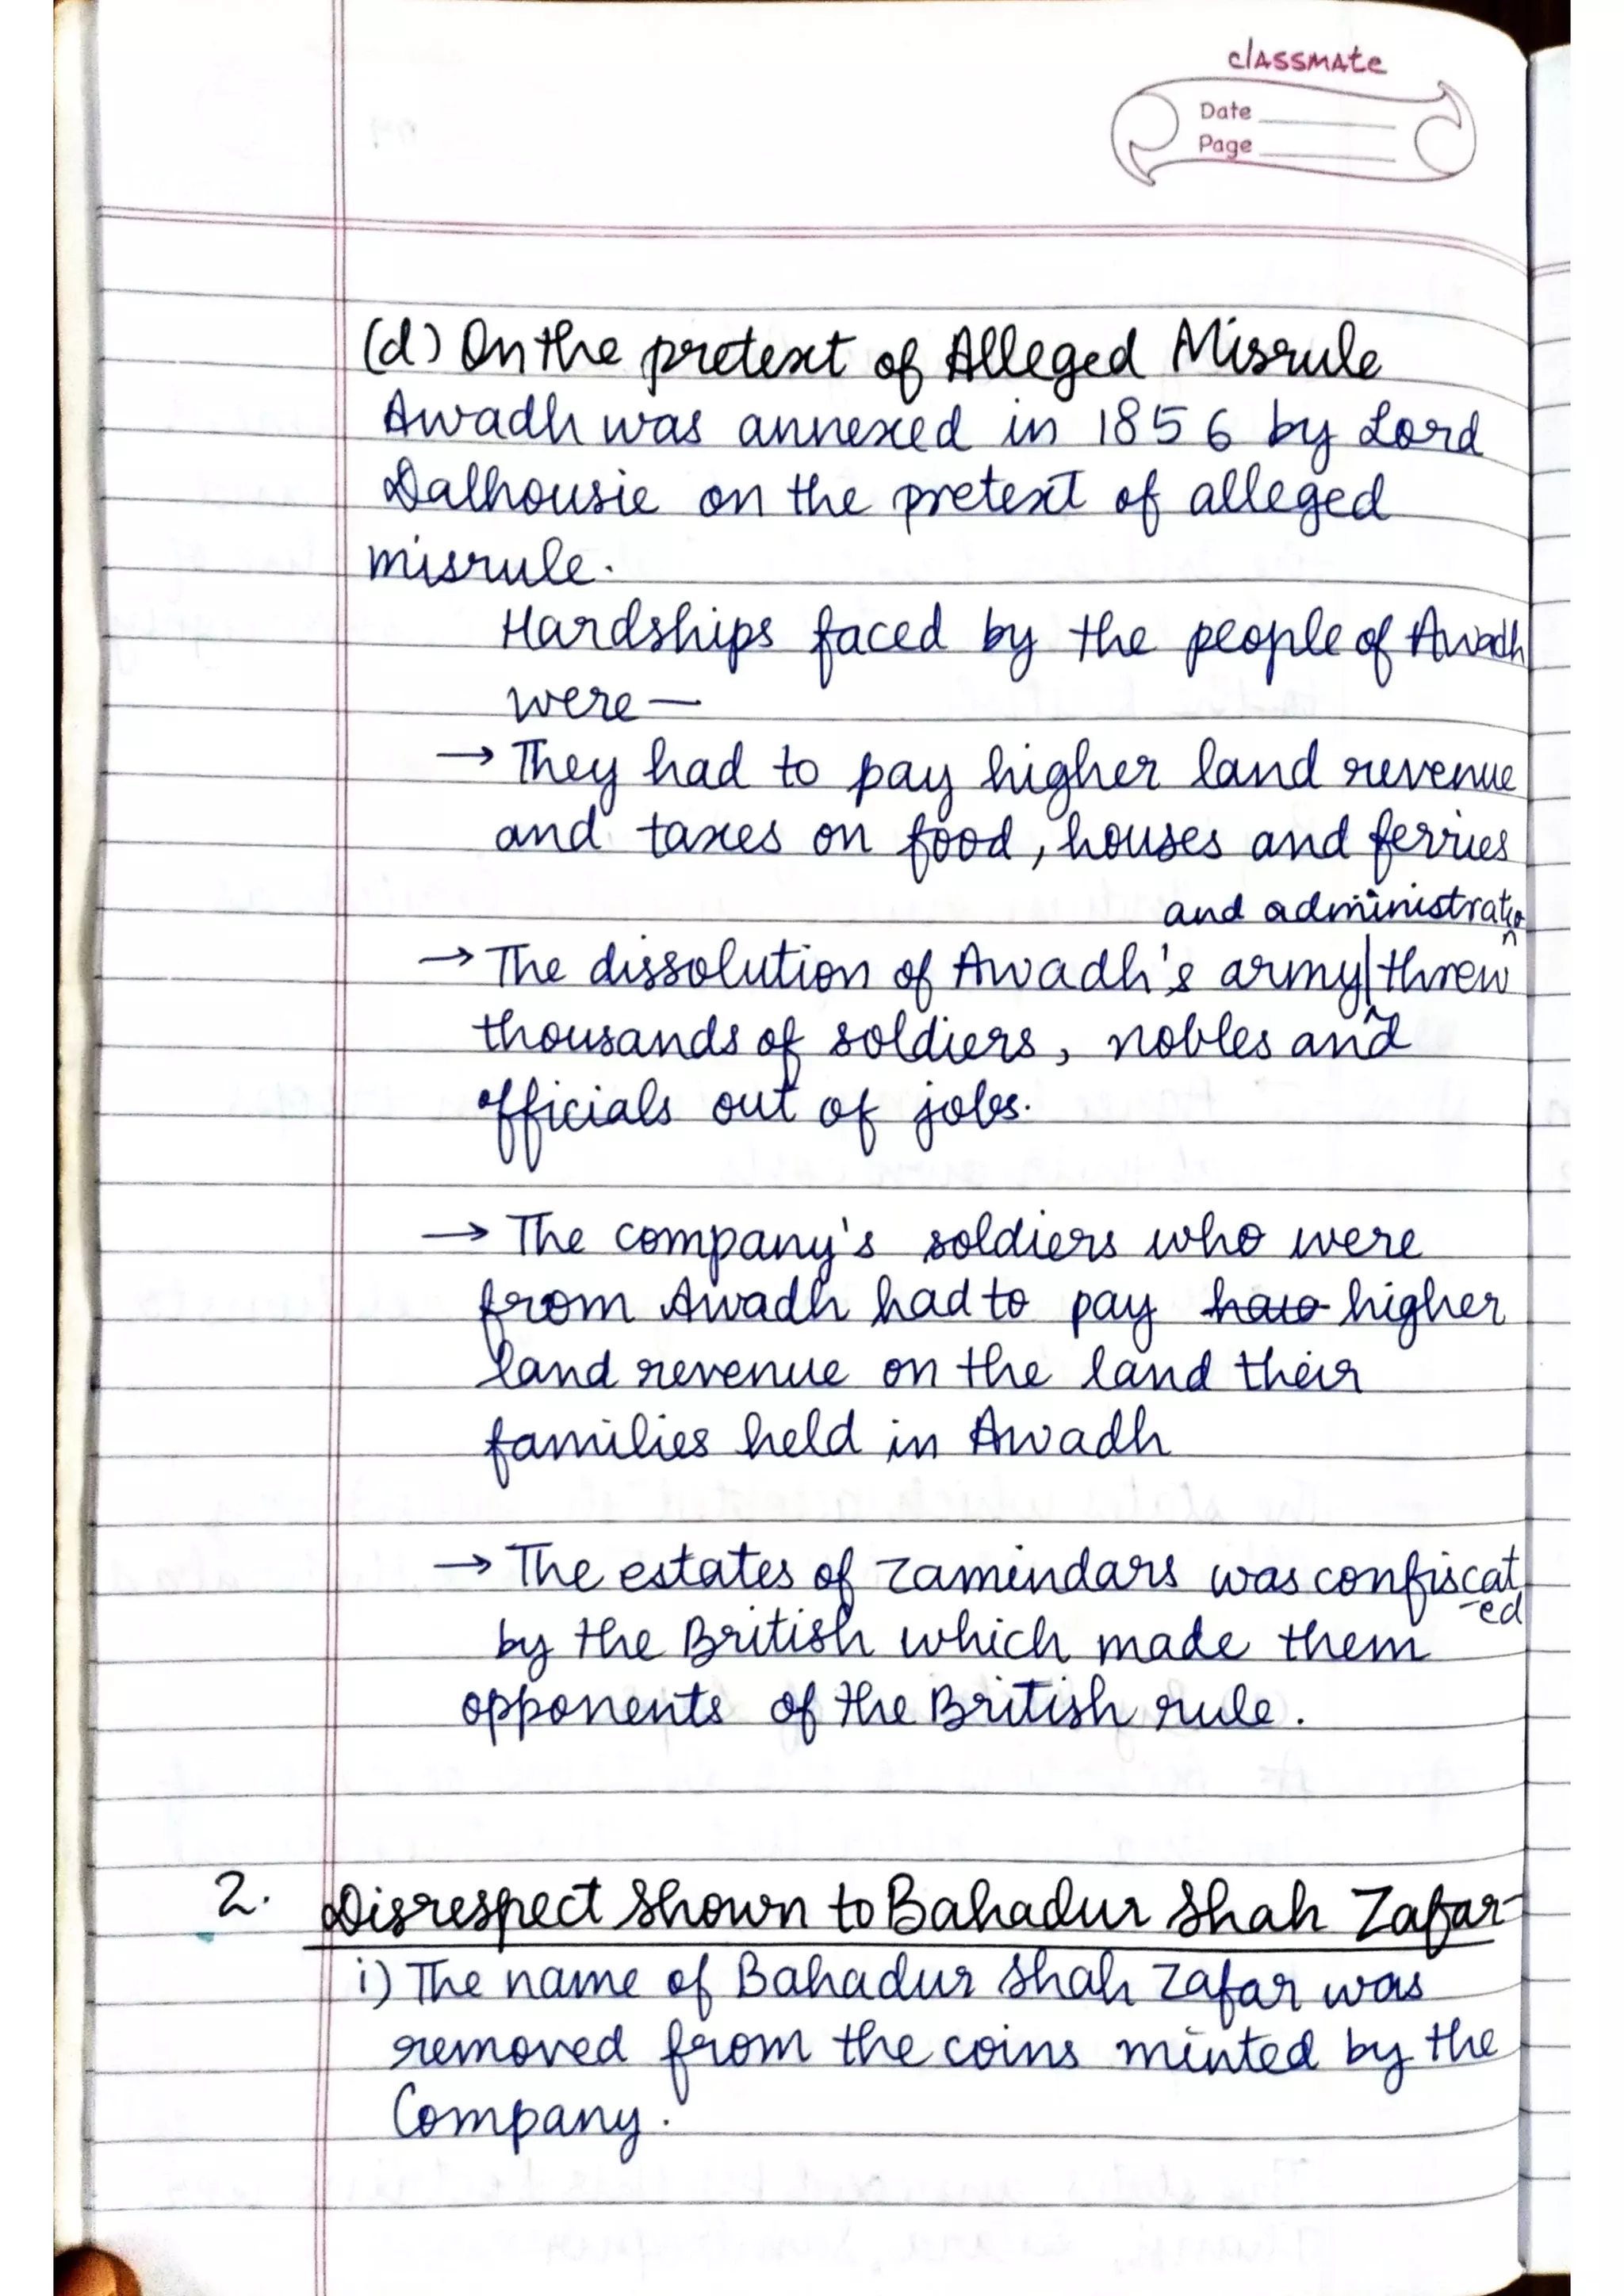 classmate
Date
Page
(d) On the pretext of Alleged Misrule
Awadh was annexed in 1856 by Lord
Dalhousie on the pretext of alleged
misrule.
Hardships faced by the people of Awadh
were —
→ They had to pay higher land revenue
and taxes on food, houses and ferries
and administratio
n
→ The dissolution of Awadh's army threw
thousands of soldiers, nobles and
officials out of jobs.
→ The company's soldiers who were
from Awadh had to pay higher
land revenue on the land their
families held in Awadh
→ The estates of zamindars was confiscat
-ed
by the British which made them
opponents of the British rule.
2. Disrespect Shown to Bahadur Shah Zafar-
i) The name of Bahadur Shah Zafar was
removed from the coins minted by the
Company.